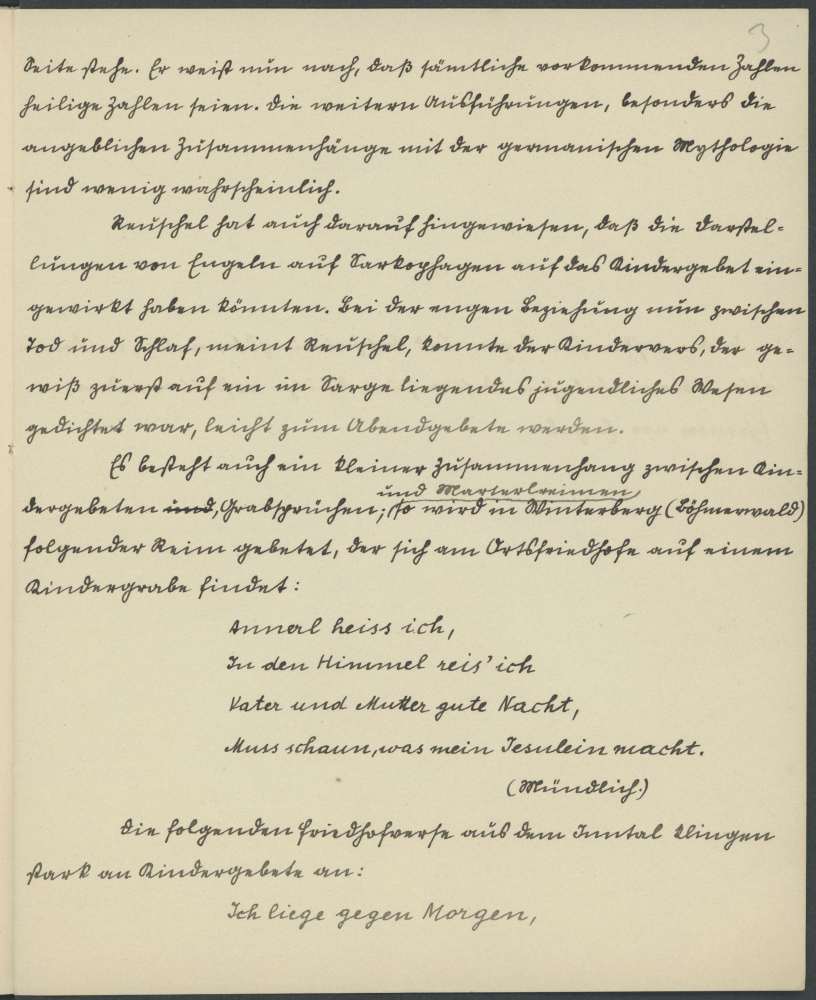 3
Seite stehe. Er weist nun nach, daß sämtliche vorkommenden Zahlen
heilige Zahlen seien. Die weitern Ausführungen, besonders die
angeblichen Zusammenhänge mit der germanischen Mythologie
sind wenig wahrscheinlich.
Reuschel hat auch darauf hingewiesen, daß die Darstel-
lungen von Engeln auf Sarkophagen auf das Kindergebet ein-
gewirkt haben könnten. Bei der engen Beziehung nun zwischen
Tod und Schlaf, meint Reuschel, konnte der Kindervers, der ge-
wiß zuerst auf ein im Sarge liegendes jugendliches Wesen
gedichtet war, leicht zum Abendgebete werden.
Es besteht auch ein kleiner Zusammenhang zwischen Kin-
und Marterlreimen
dergebeten und, Grabsprüchen; so wird in Winterberg (Böhmerwald)
folgender Reim gebetet, der sich am Ortsfriedhofe auf einem
Kindergrabe findet:
Annerl heiss ich,
In den Himmel reis' ich
Vater und Mutter gute Nacht,
Muss schaun, was mein Jesulein macht.
(Mündlich.)
Die folgenden Friedhofverse aus dem Inntal klingen
stark an Kindergebete an:
Ich liege gegen Morgen,